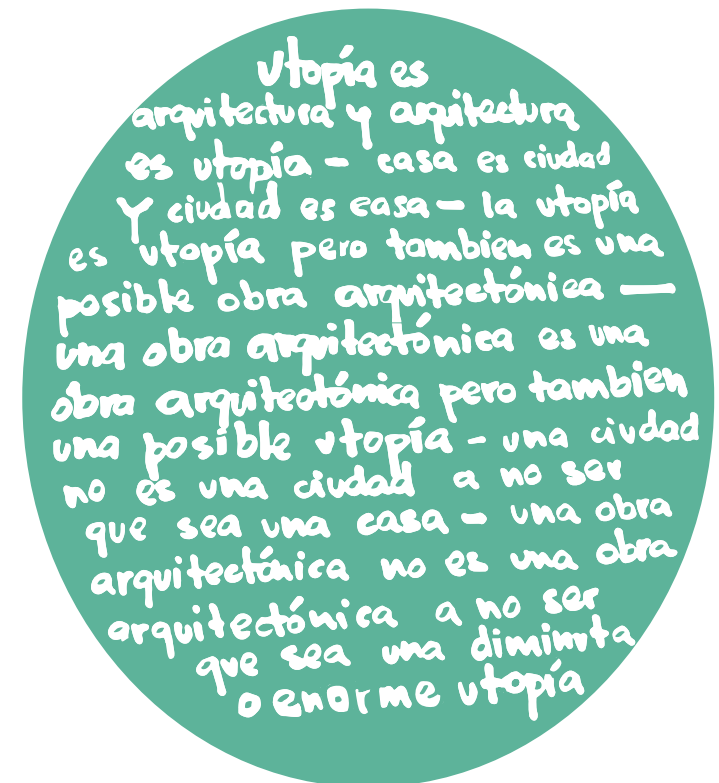 Utopía es
arquitectura y arquitectura
es utopía - casa es ciudad
Y ciudad es casa - la utopía
es utopía pero tambien es una
posible obra arquitectónica —
una obra arquitectónica es una
obra arquitectónica pero tambien
una posible utopía - una ciudad
no es una ciudad a no ser
que sea una casa - una obra
arquitectónica no es una obra
arquitectónica a no ser
que sea una diminuta
o enorme utopía